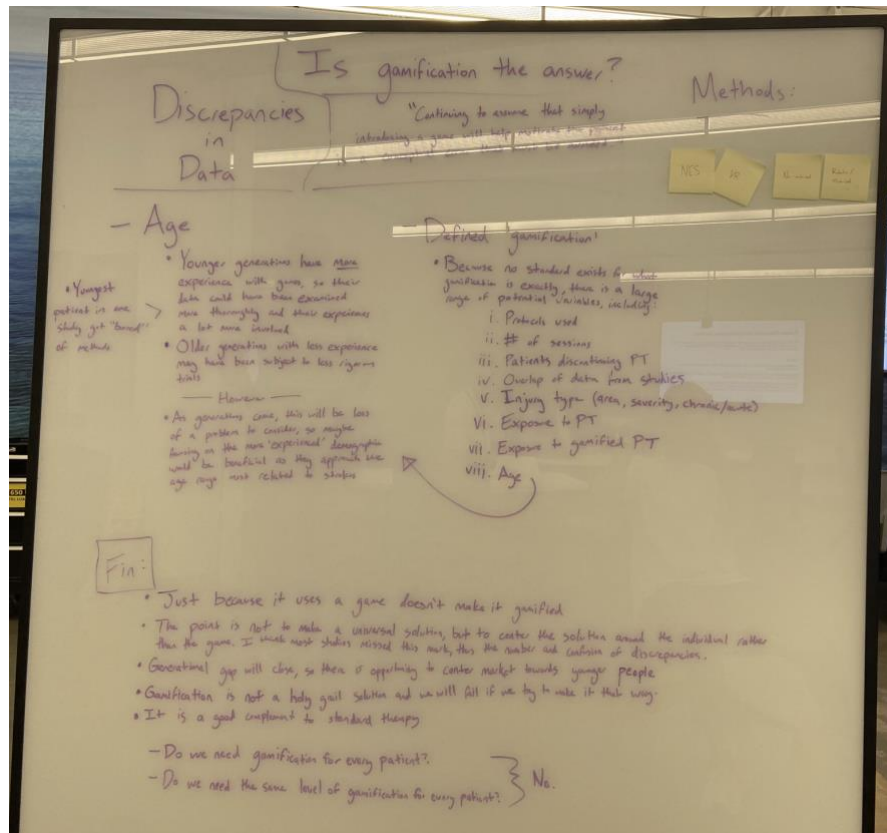 Is gamification the answer?
"Continuing to assume that simply
introducing a game will help motivate the patient
Discrepancies
in
Data
Methods:
NES
No
— Age
• Younger generations have more
experience with games, so their
data could have been examined
more thoroughly and their experiences
a lot more involved
• Youngest
patient in one
study got "bored"
of methods
• Older generations with less experience
may have been subject to less rigorous
trials
— However —
• As generations come, this will be less
of a problem to consider, so maybe
focusing on the more 'experienced' demographic
would be beneficial as they approach the
age range most related to strokes
Defined 'gamification'
• Because no standard exists for what
gamification is exactly, there is a large
range of potential variables, including:
i. Protocols used
ii. # of sessions
iii. Patients discontinuing PT
iv. Overlap of data from studies
v. Injury type (area, severity, chronic/acute)
vi. Exposure to PT
vii. Exposure to gamified PT
viii. Age
Fin:
• Just because it uses a game doesn't make it gamified
• The point is not to make a universal solution, but to center the solution around the individual rather
than the game. I think most studies missed this mark, thus the number and confusion of discrepancies.
• Generational gap will close, so there is opportunity to center market towards younger people
• Gamification is not a holy grail solution and we will fail if we try to make it that way.
• It is a good complement to standard therapy
— Do we need gamification for every patient?
— Do we need the same level of gamification for every patient?
No.
650